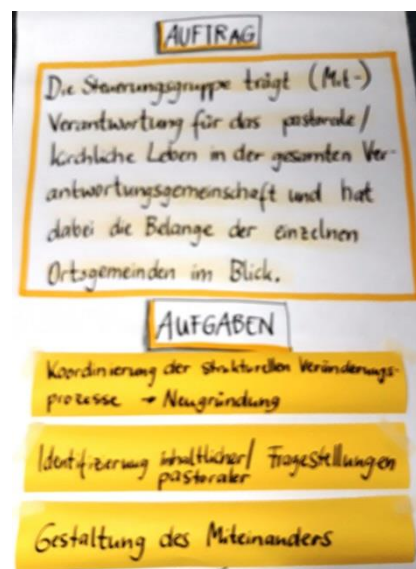 AUFTRAG
Die Steuerungsgruppe trägt (Mit-)
Verantwortung für das pastorale/
kirchliche Leben in der gesamten Ver-
antwortungsgemeinschaft und hat
dabei die Belange der einzelnen
Ortsgemeinden im Blick.
AUFGABEN
Koordinierung der strukturellen Veränderungs-
prozesse → Neugründung
Identifizierung inhaltlicher/ Fragestellungen
pastoraler
Gestaltung des Miteinanders